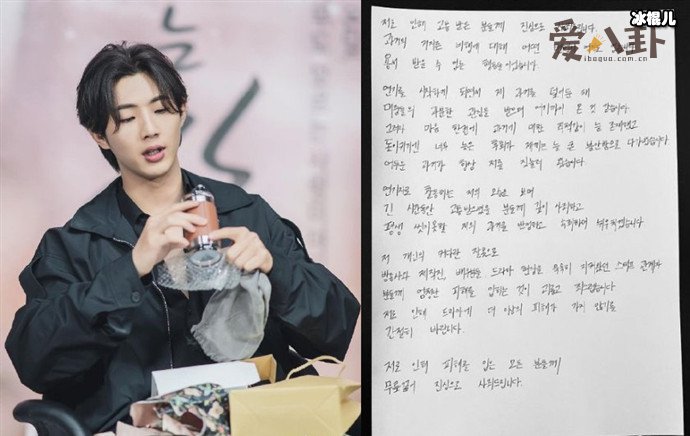 冰棍儿
爱八卦
ibagua.com.cn
저로 인해 고통 받은 분들께 진심으로
과거의 저지른 비행에 대해 어떤
용서 받을 수 없는 행동들이었습니다.
연기를 시작하게 되면서 제 과거를 덮어둔 채
대중들의 과분한 관심을 받으며 여기까지 온 것 같습니다.
그러나 마음 한편에 과거에 대한 죄책감이 늘 존재했고
돌이키기엔 너무 늦은 후회가 저에게는 늘 큰 불안함으로 다가왔습니다
어두운 과거가 항상 저를 짓눌러 왔습니다.
연기자로 활동하는 저의 모습을 보며
긴 시간동안 고통받으셨을 분들께 깊이 속죄하고
평생 씻지못할 저의 과거를 반성하고
저 개인의 커다란 잘못으로
방송사와 제작진, 배우들, 드라마 현장을 묵묵히 지켜왔던 스태프 관계자
분들께 엄청난 피해를 입히는 것이 괴롭고 죄스럽습니다
저로 인해 드라마에 더 이상의 피해가 가지 않기를
간절히 바랍니다.
저로 인해 피해를 입은 모든 분들께
무릎꿇어 진심으로 사죄드립니다.